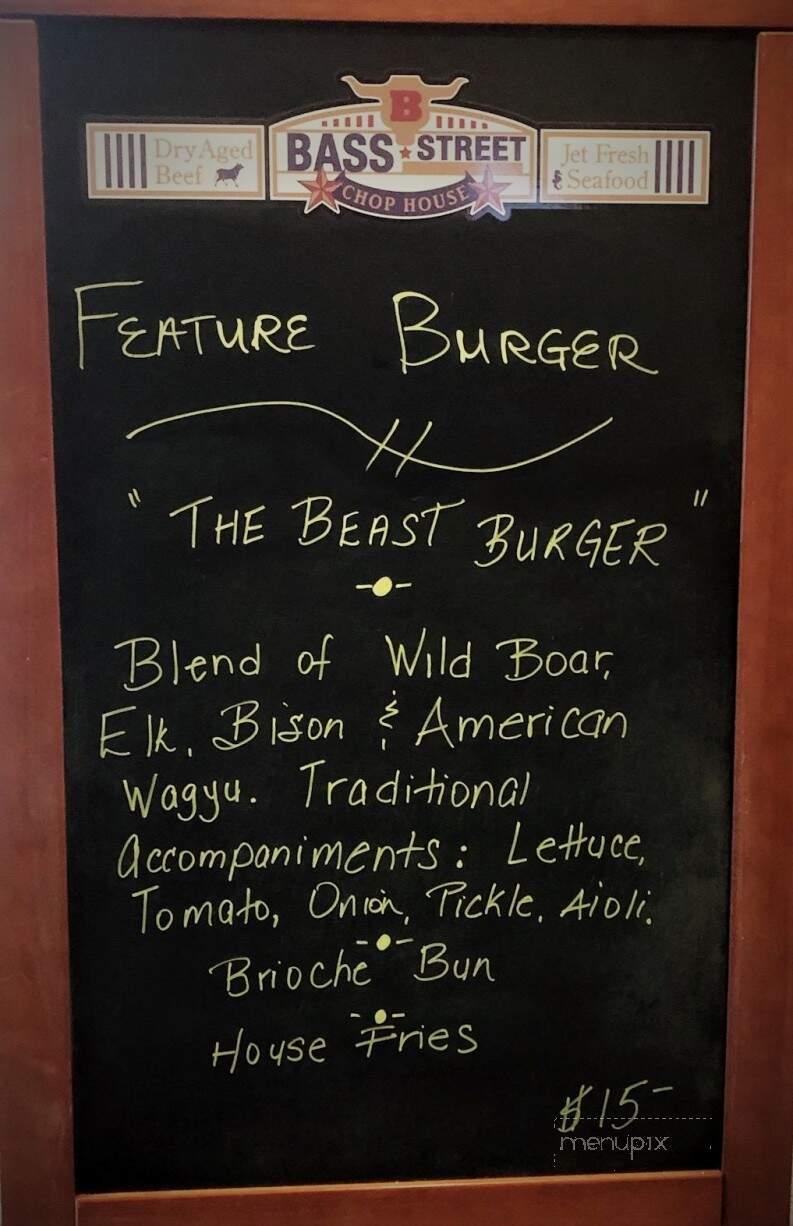 B
Dry Aged
Beef
BASS STREET
CHOP HOUSE
Jet Fresh
Seafood
FEATURE BURGER
"THE BEAST BURGER"
Blend of Wild Boar,
Elk, Bison & American
Wagyu. Traditional
Accompaniments: Lettuce,
Tomato, Onion, Pickle, Aioli.
Brioche Bun
House Fries
$15-
menupix